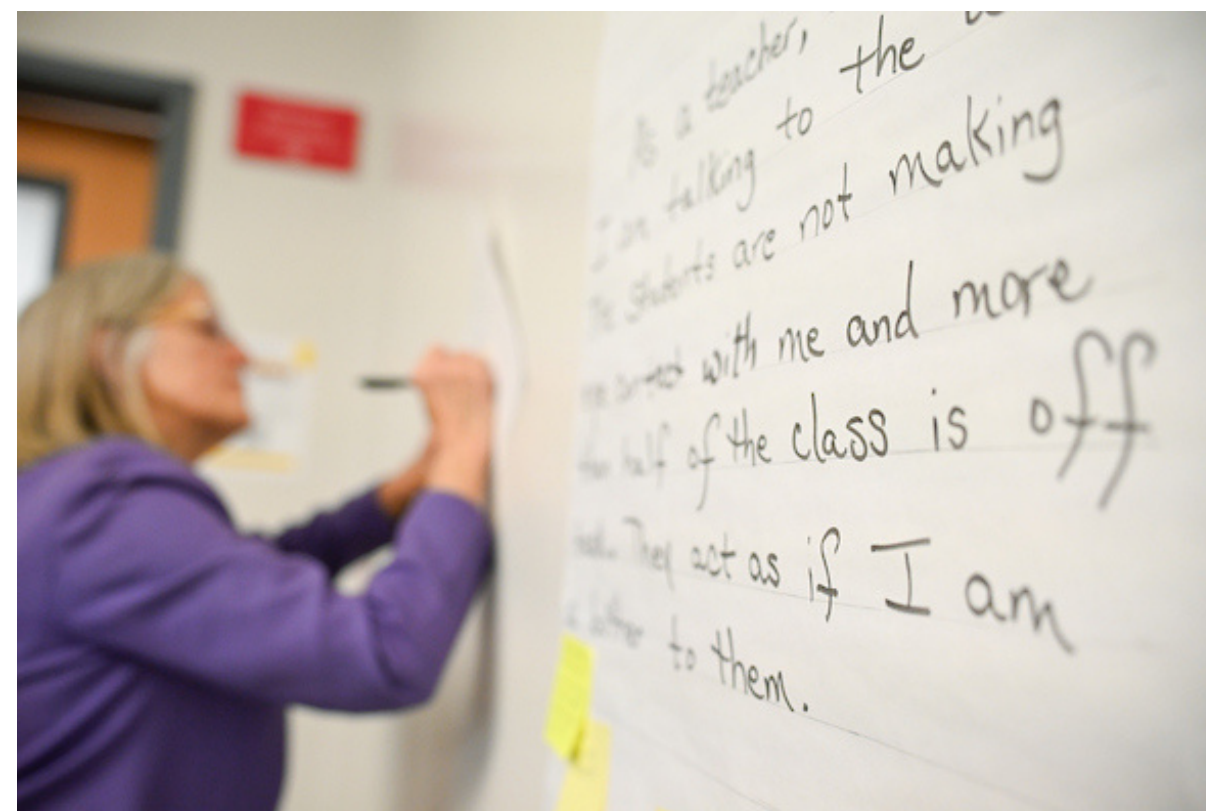 As a teacher,
I am talking to the
The students are not making
eye contact with me and more
than half of the class is off
task. They act as if I am
a bother to them.